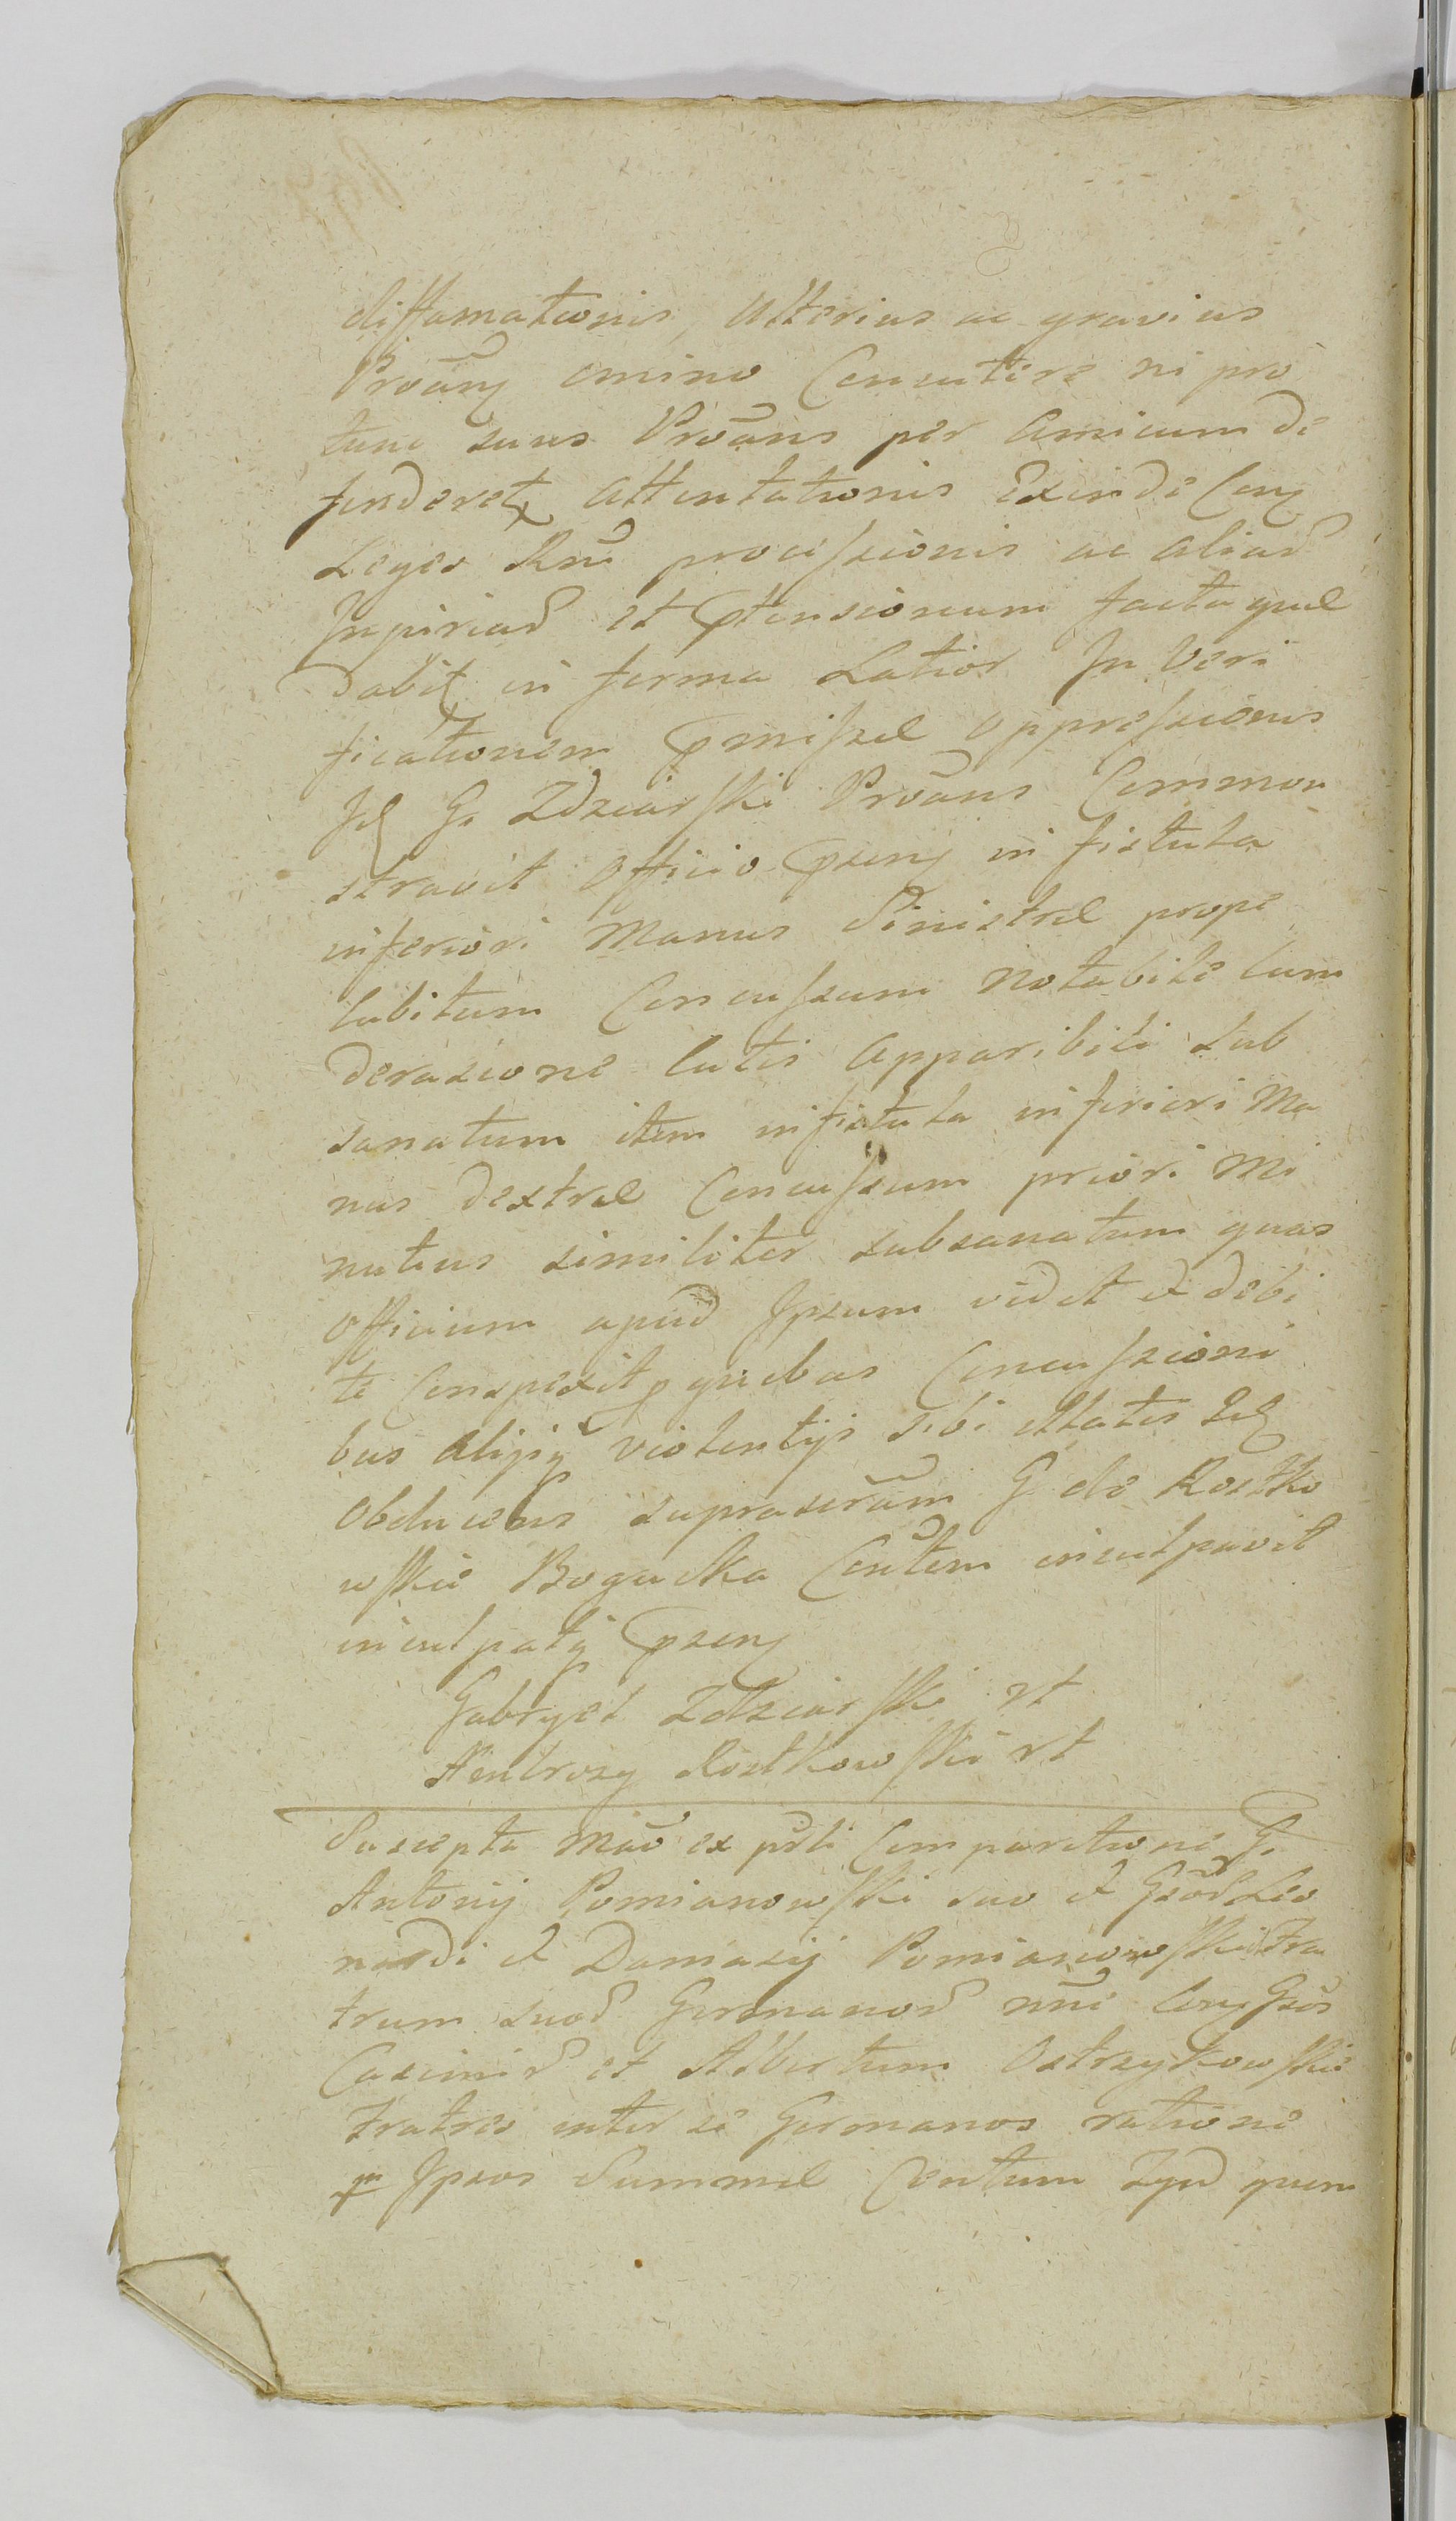 diffamationis, Ulterius ac gravius
Provāng omino Concutere ni pro
tunc suus Provāns per Amicum de
fenderet, Attentationis Exinde Con
Leges Rñi processionis ac aliar
Injuriar et ptensionum facta quæ
dabit in forma Latior In Veri
ficationem pmissæ oppressionis
G. Zdziarski Provāns Common
stravit Officio pseny in fistula
inferiori Manus Sinistræ prope
Cubitum Concussum notabile Cum
derasione Cutis Apparibili Sub
sanatum item in fistula inferiori Ma
nus dextræ Concussum priori Mi
nutius similiter subsanatum quas
Officium apud Ipsum vidit et debi
te Conspexit p quibus Concussioni
bus Alijsq violentijs sibi illatis
Obducens suprascrām G de Rostko
wskie Bogucka Conītem inculpavit
inculpatq pseny
Gabryel Zdziarski rt
Ambrozy Rostkowski rt
Suscepta Māō ex psti Comparitione G.
Antonij Pomianowski suo et Gsor Leo
nardi et Damazij Pomianowskich Fra
trum suor Germanor nñe Cong Gsos
Casimir et Albertum Ostrzykowskie
Fratres inter se Germanos ratione
p Ipsos Summæ Centum Zyd quem